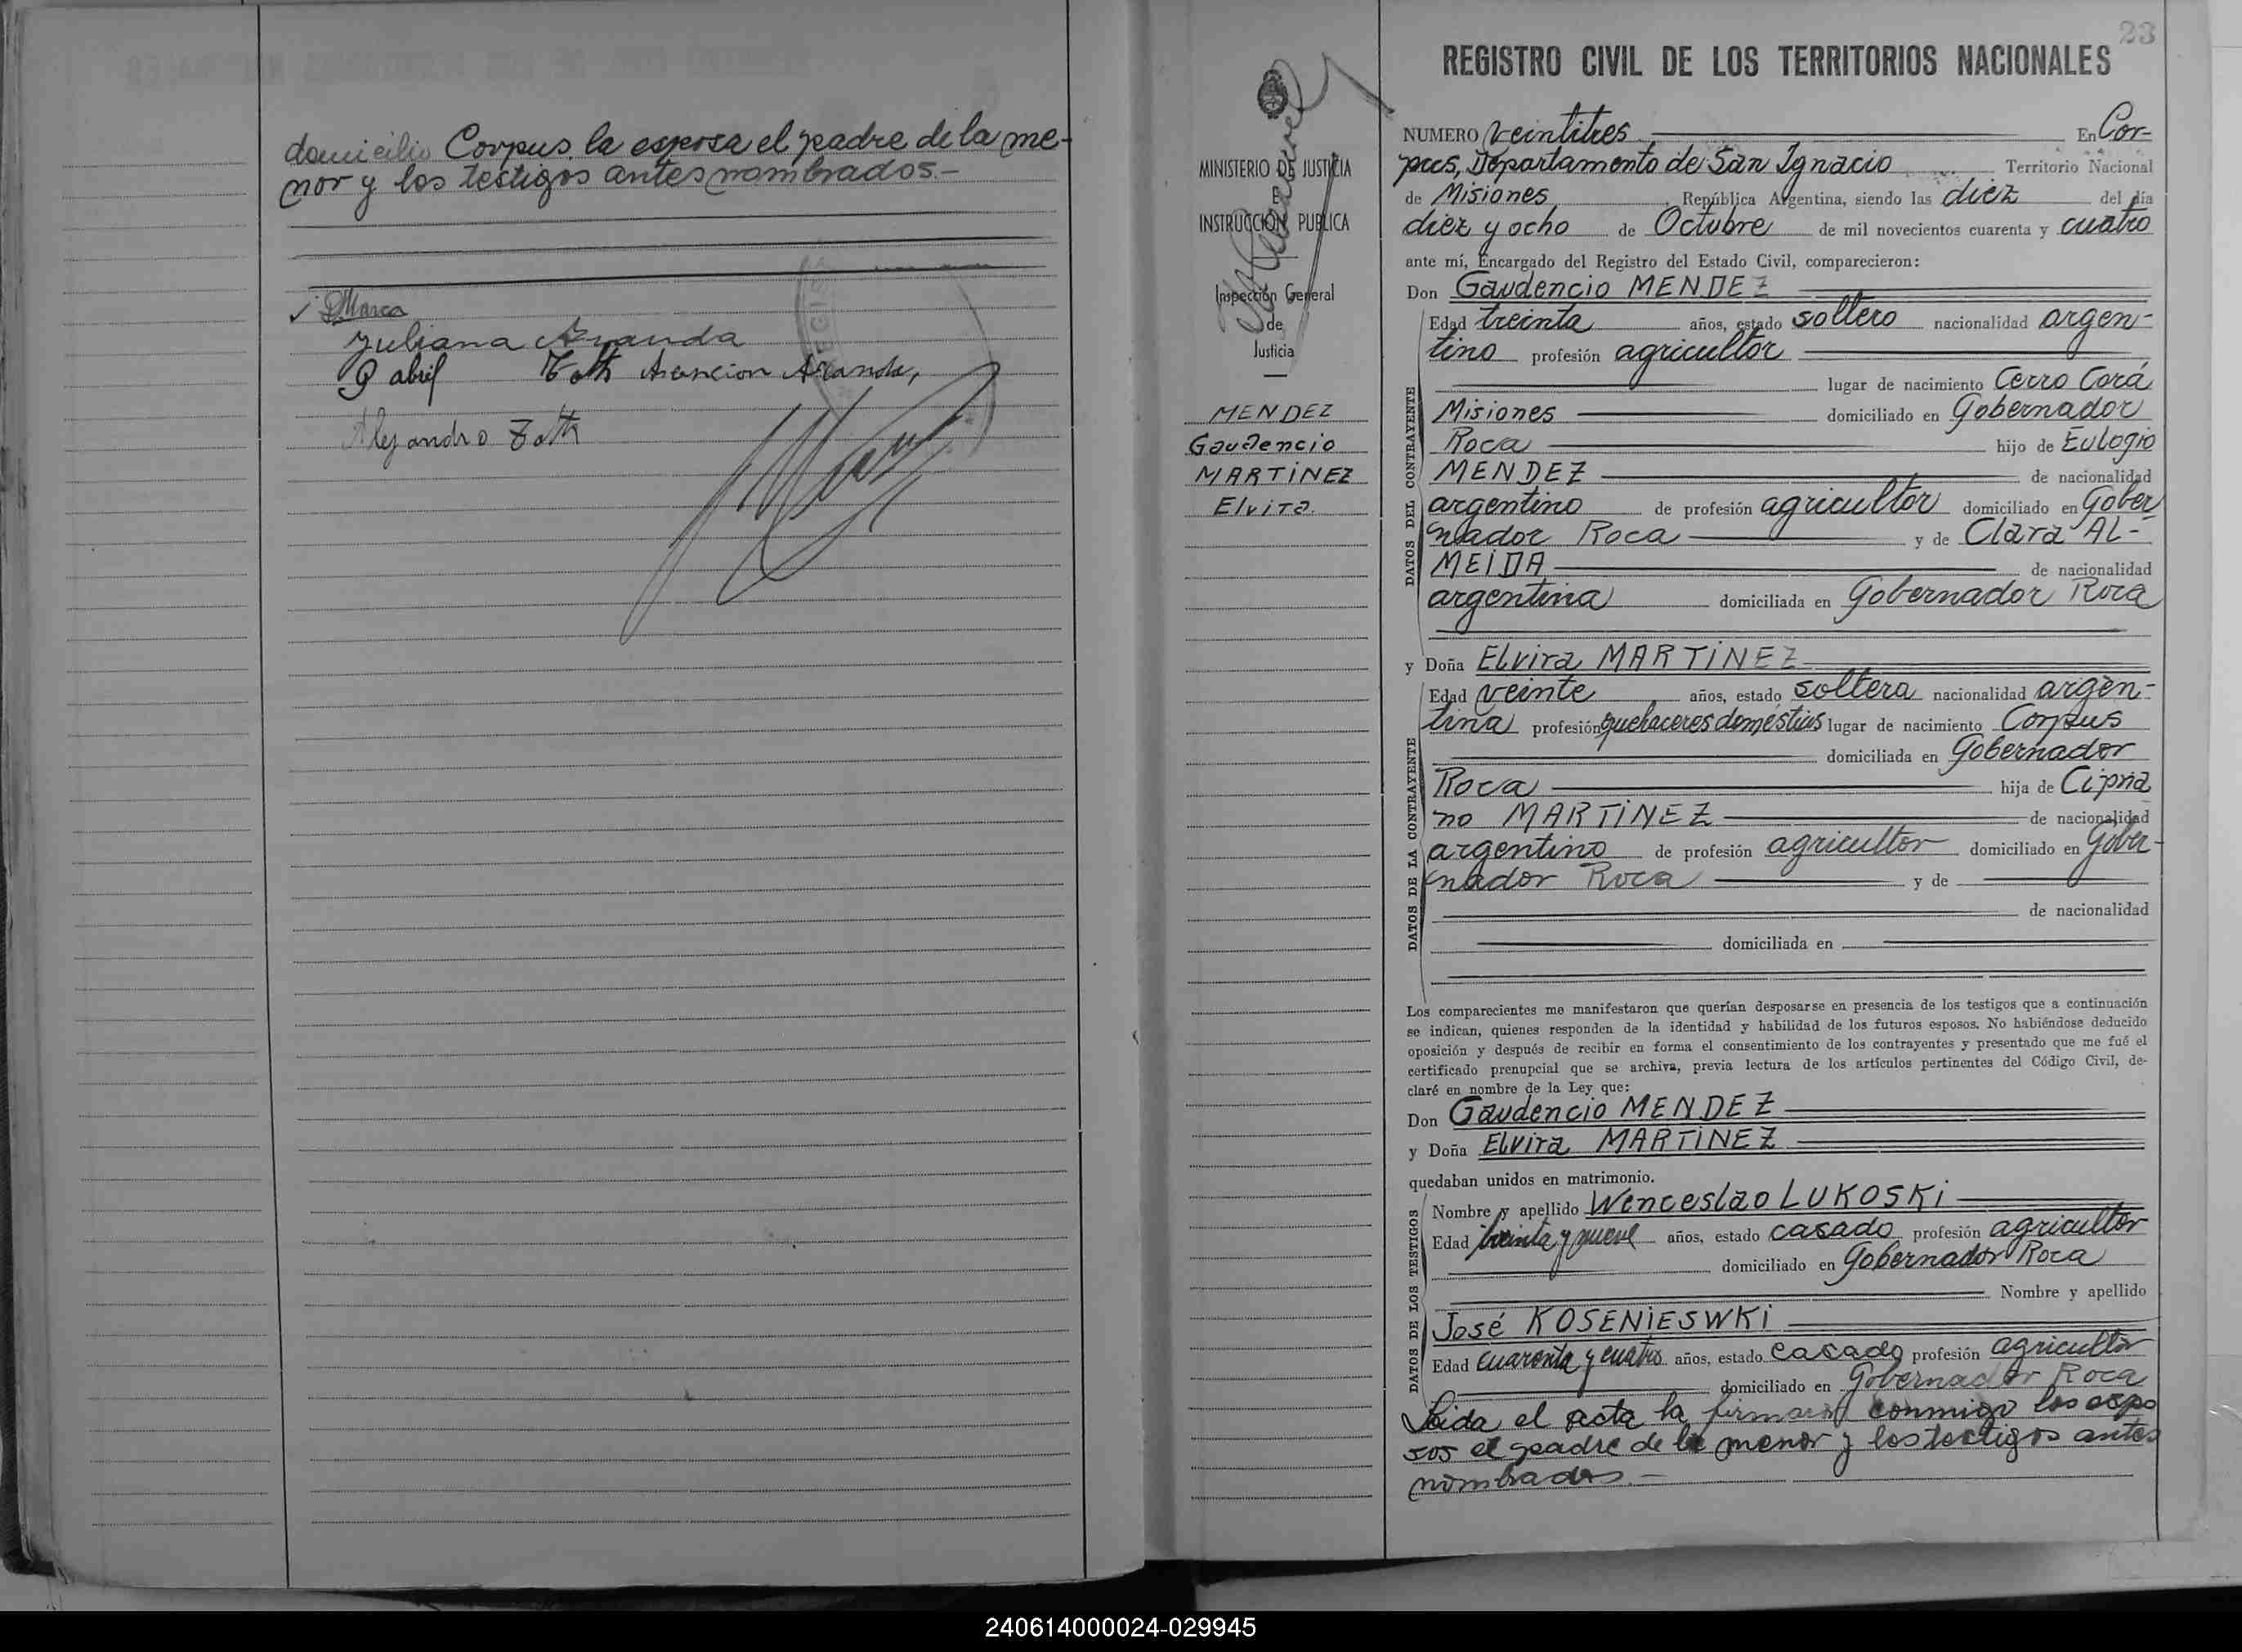 domicilio Corpus, la esposa el padre de la me-
nor y los testigos antes nombrados.-
Juliana Aranda
Toth Asencion Aranda,
Alejandro Toth
23
REGISTRO CIVIL DE LOS TERRITORIOS NACIONALES
MINISTERIO DE JUSTICIA
E
INSTRUCCIÓN PUBLICA
Inspección General
de
Justicia
MENDEZ
Gaudencio
MARTINEZ
Elvira
NUMERO veintitres En Cor-
pus, Departamento de San Ignacio Territorio Nacional
de Misiones República Argentina, siendo las diez del día
diez y ocho de Octubre de mil novecientos cuarenta y cuatro
ante mí, Encargado del Registro del Estado Civil, comparecieron:
Don Gaudencio MENDEZ
DATOS DEL CONTRAYENTE
Edad treinta años, estado soltero nacionalidad argen-
tino profesión agricultor
lugar de nacimiento Cerro Corá
Misiones domiciliado en Gobernador
Roca hijo de Eulogio
MENDEZ de nacionalidad
argentino de profesión agricultor domiciliado en Gober
nador Roca y de Clara AL-
MEIDA de nacionalidad
argentina domiciliada en Gobernador Roca
y Doña Elvira MARTINEZ
DATOS DE LA CONTRAYENTE
Edad veinte años, estado soltera nacionalidad argen-
tina profesión quehaceres domésticos lugar de nacimiento Corpus
domiciliada en Gobernador
Roca hija de Cipria
no MARTINEZ de nacionalidad
argentino de profesión agricultor domiciliado en Gober-
nador Roca y de
de nacionalidad
domiciliada en
Los comparecientes me manifestaron que querían desposarse en presencia de los testigos que a continuación
se indican, quienes responden de la identidad y habilidad de los futuros esposos. No habiéndose deducido
oposición y después de recibir en forma el consentimiento de los contrayentes y presentado que me fué el
certificado prenupcial que se archiva, previa lectura de los artículos pertinentes del Código Civil, de-
claré en nombre de la Ley que:
Don Gaudencio MENDEZ
y Doña Elvira MARTINEZ
quedaban unidos en matrimonio.
DATOS DE LOS TESTIGOS
Nombre y apellido Wenceslao LUKOSKI
Edad treinta y nueve años, estado casado profesión agricultor
domiciliado en Gobernador Roca
Nombre y apellido
José KOSENIESWKI
Edad cuarenta y cuatro años, estado casado profesión agricultor
domiciliado en Gobernador Roca
Leida el acta la firmaron conmigo los espo
sos el padre de la menor y los testigos antes
nombrados.-
240614000024-029945